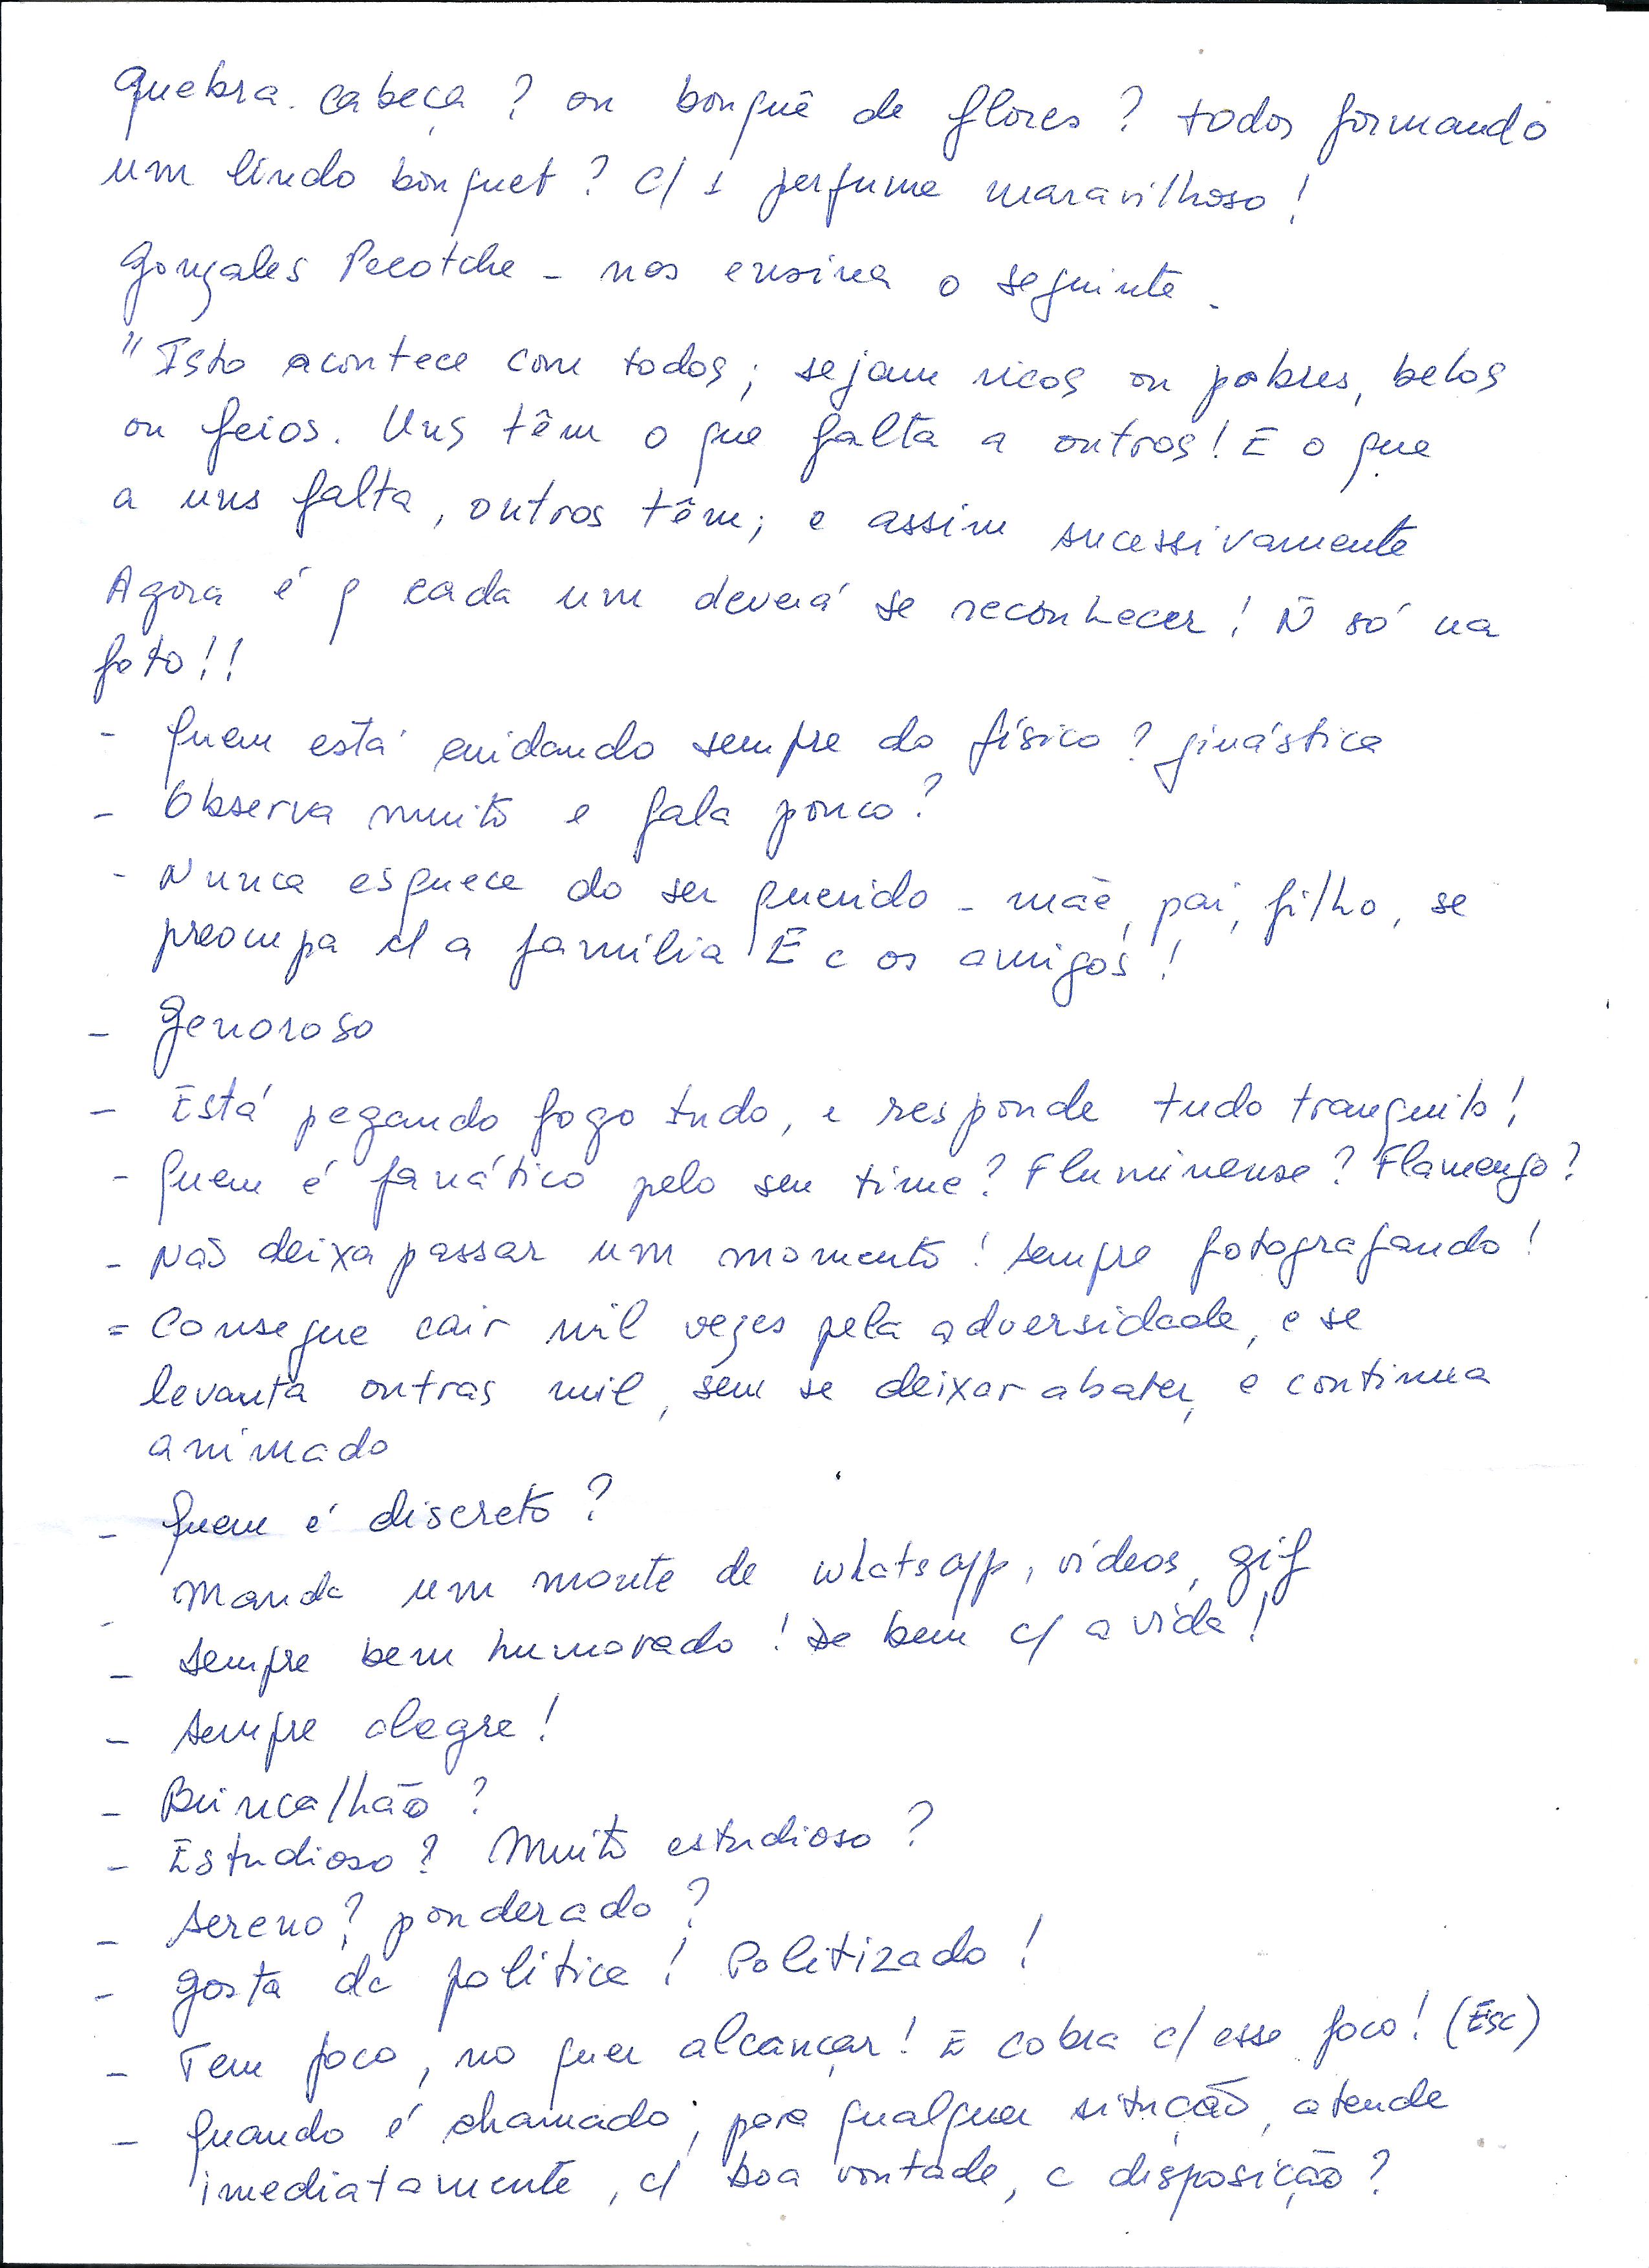 Quebra-cabeça? ou bouquê de flores? todos formando
um lindo bouquet? c/ 1 perfume maravilhoso!
Gonzales Pecotche - nos ensina o seguinte.
"Isto acontece com todos; sejam ricos ou pobres, belos
ou feios. Uns têm o que falta a outros! E o que
a uns falta, outros têm; e assim sucessivamente
Agora é q cada um deverá se reconhecer! Ñ só na
foto!!
- Quem está cuidando sempre do físico? ginástica
- Observa muito e fala pouco?
- Nunca esquece do ser querido - mãe, pai, filho, se
preocupa c/ a família E c os amigos!
- Genoroso
- Está pegando fogo tudo, e responde tudo tranquilo!
- Quem é fanático pelo seu time? Fluminense? Flamengo?
- Não deixa passar um momento! sempre fotografando!
= Consegue cair mil vezes pela adversidade, e se
levanta outras mil, sem se deixar abater, e continua
animado
- Quem é discreto?
- Manda um monte de whatsapp, vídeos, gif
- sempre bem humorado! De bem c/ a vida!
- sempre alegre!
- Brincalhão?
- Estudioso? Muito estudioso?
- sereno? ponderado?
- gosta de política! Politizado!
- Tem foco, no quer alcançar! E cobra c/ esse foco! (Esc)
- Quando é chamado; para qualquer situção, atende
imediatamente, c/ boa vontade, e disposição?